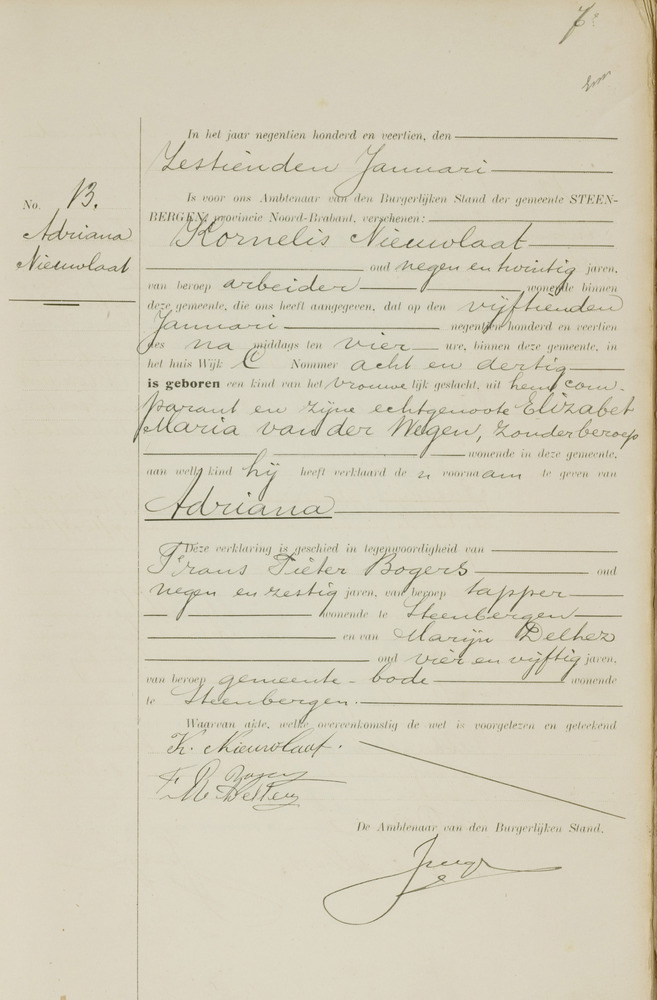 7
In het jaar negentien honderd en veertien, den
Zestienden Januari
Is voor ons Ambtenaar van den Burgerlijken Stand der gemeente STEEN-
No. 13.
BERGEN, provincie Noord-Brabant, verschenen:
Adriana
Kornelis Nieuwlaat
Nieuwlaat
oud negen en twintig jaren,
van beroep arbeider wonende binnen
deze gemeente, die ons heeft aangegeven, dat op den vijftienden
Januari negentien honderd en veertien
des na middags ten vier ure, binnen deze gemeente, in
het huis Wijk C Nommer acht en dertig
is geboren een kind van het vrouwe lijk geslacht, uit hem com-
parant en zijne echtgenoote Elizabet
Maria van der Wegen, zonder beroep
wonende in deze gemeente,
aan welk kind hij heeft verklaard de n voornaam te geven van
Adriana
Deze verklaring is geschied in tegenwoordigheid van
Frans Pieter Bogers oud
negen en zestig jaren, van beroep tapper
wonende te Steenbergen
en van Marijn Delhez
oud vier en vijftig jaren,
van beroep gemeente-bode wonende
te Steenbergen.
Waarvan akte, welke overeenkomstig de wet is voorgelezen en geteekend
K. Nieuwlaat.
De Ambtenaar van den Burgerlijken Stand.